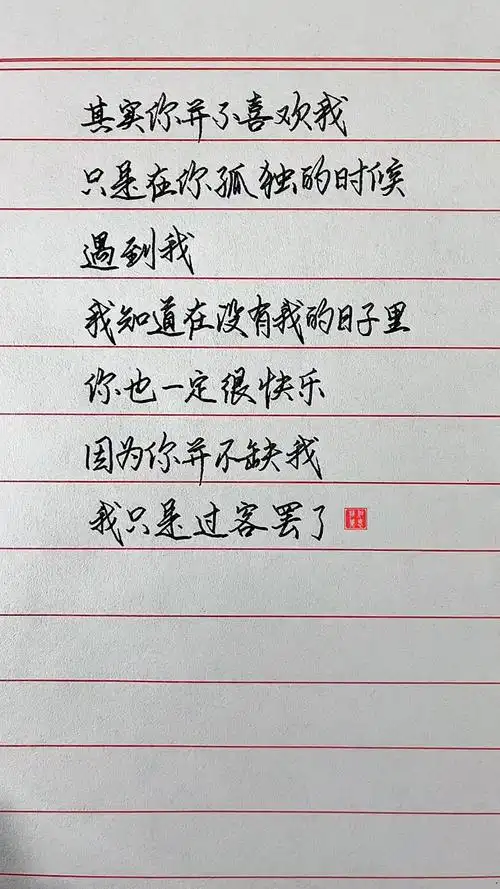 其实你并不喜欢我
只是在你孤独的时候
遇到我
我知道在没有我的日子里
你也一定很快乐
因为你并不缺我
我只是过客罢了